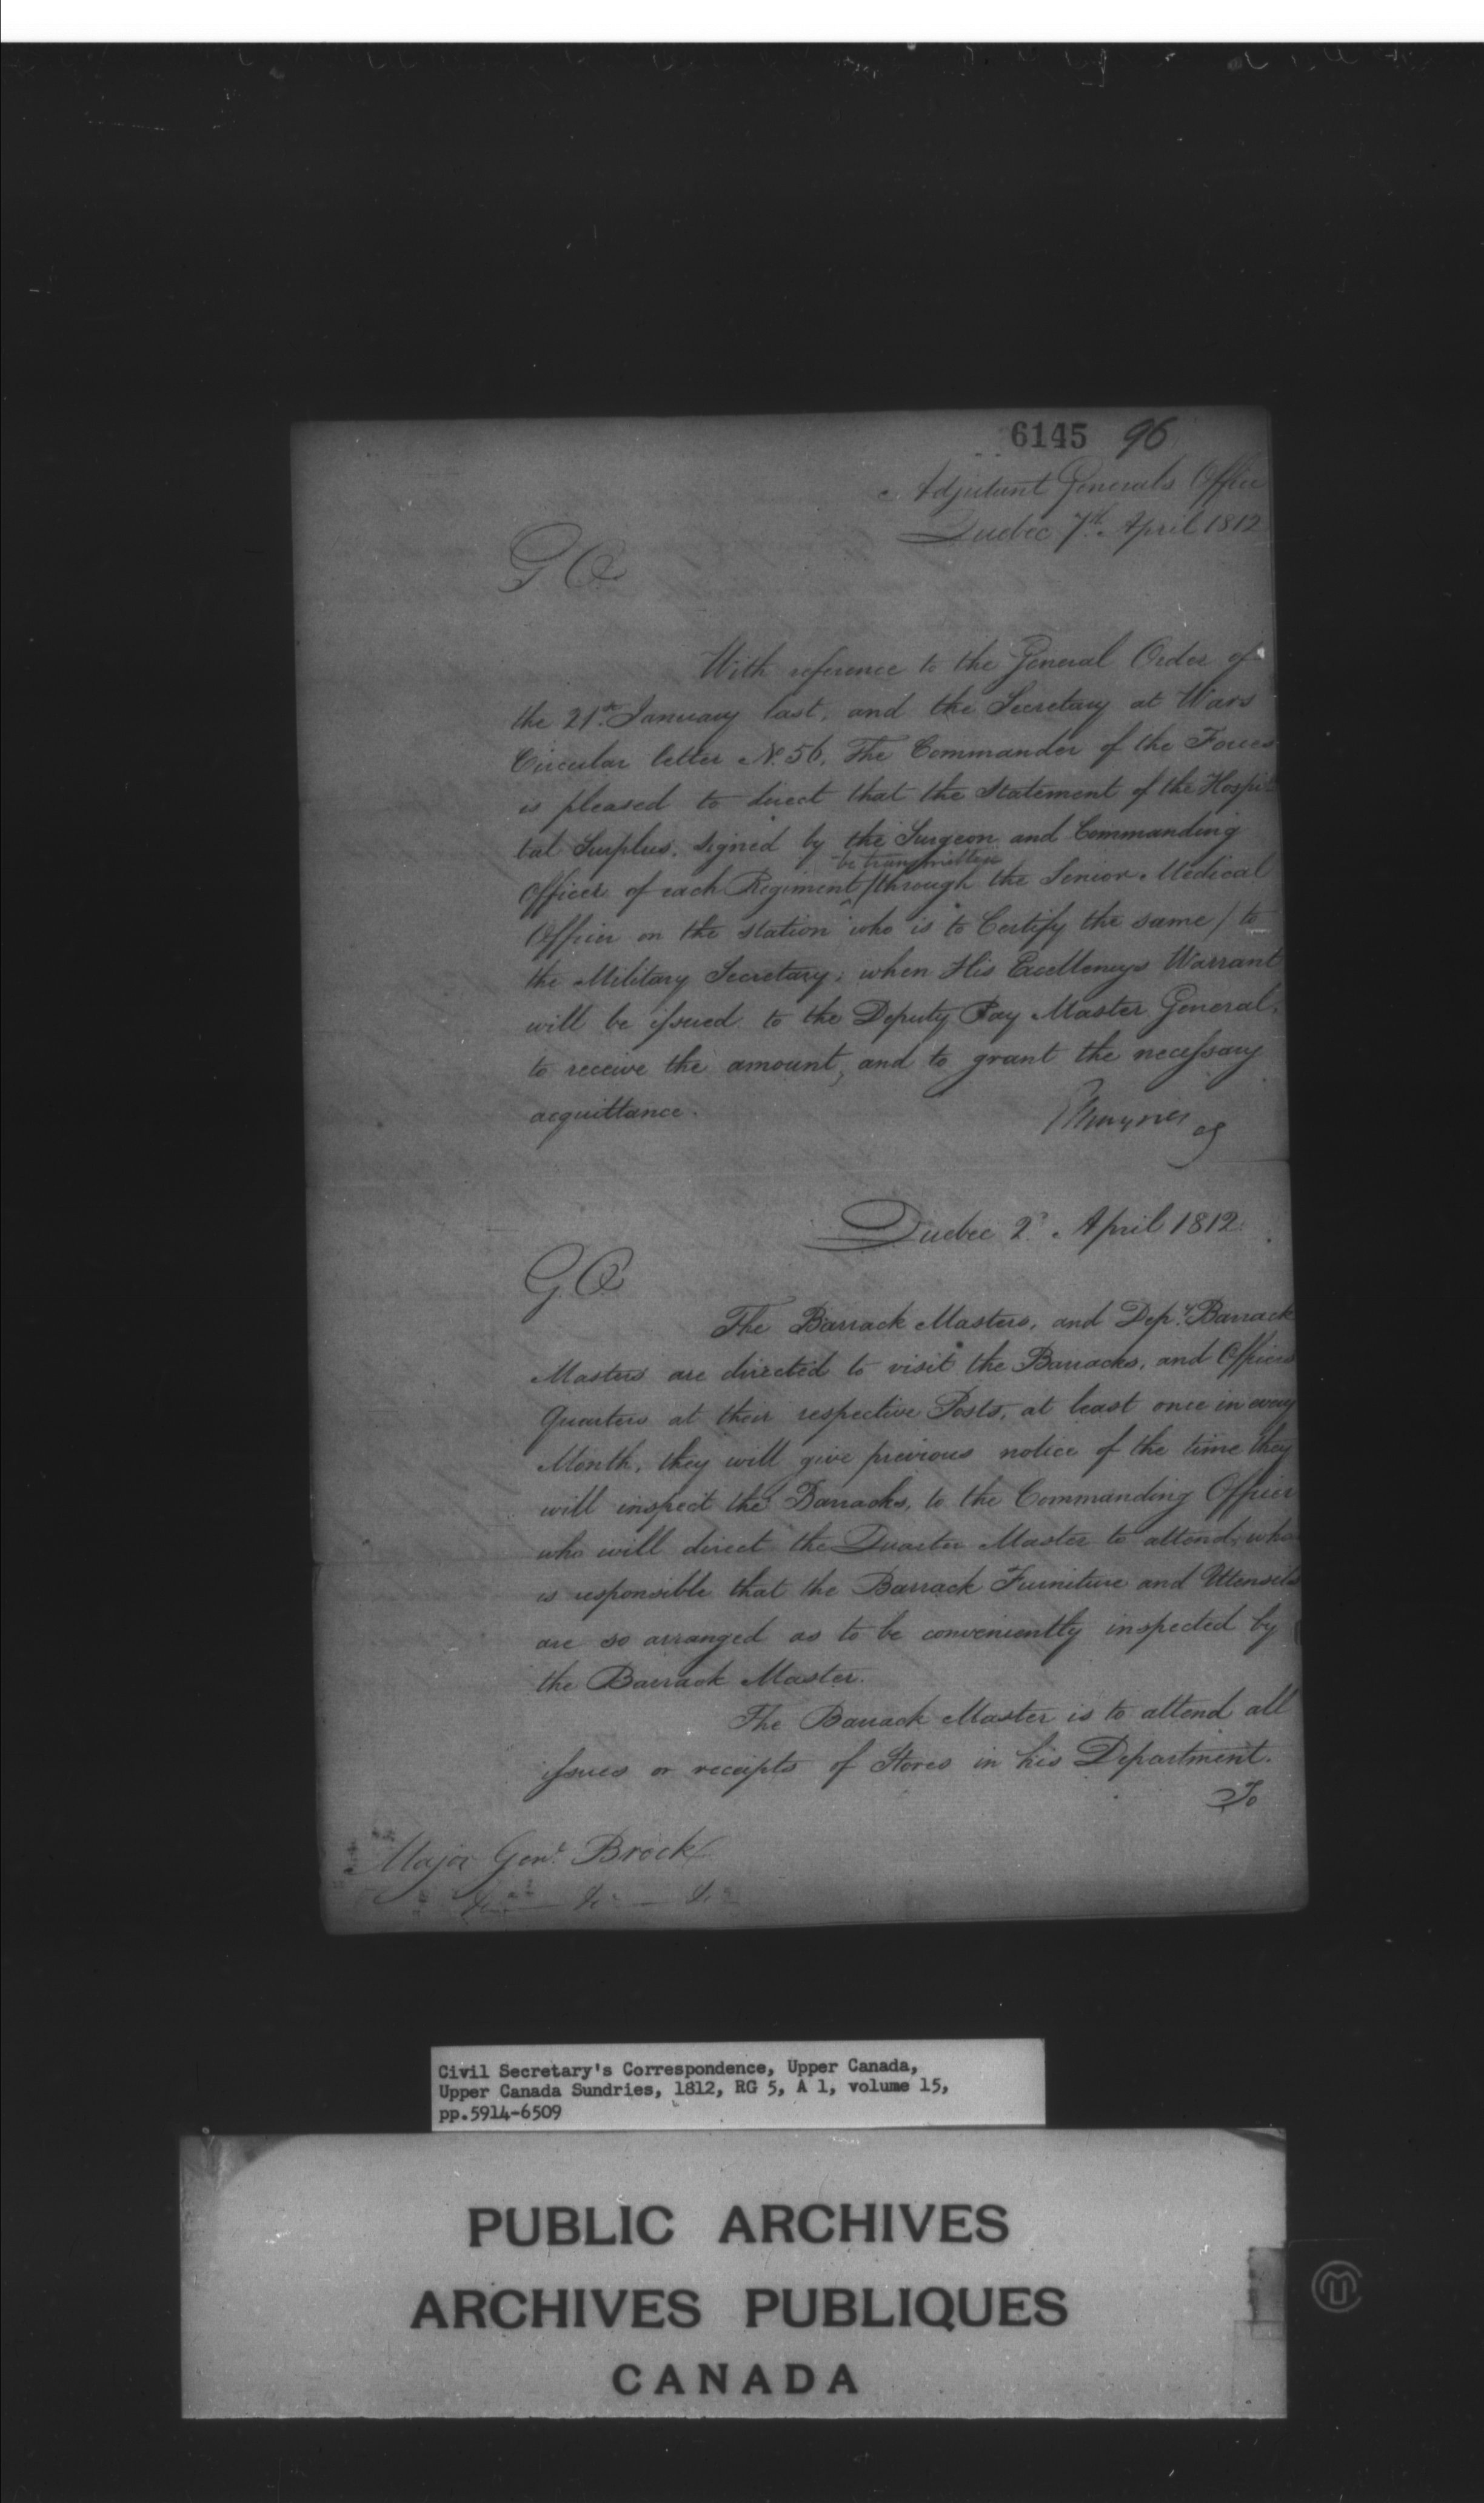 6145 96
Adjutant Generals Office
Quebec 7th. April 1812
G O
With reference to the General Order of
the 21st. January last, and the Secretary at Wars
Circular letter No. 56, The Commander of the Forces
is pleased to direct that the Statement of the Hospi-
tal Surplus, signed by the Surgeon and Commanding
be transmitted
Officer of each Regiment /through the Senior Medical
Officer on the station who is to Certify the same / to
the Military Secretary; when His Excellencys Warrant
will be issued to the Deputy Pay Master General,
to receive the amount, and to grant the necessary
acquittance.
EBaynes AG
Quebec 2d. April 1812.
G.O.
The Barrack Masters, and Depy. Barrack
Masters are directed to visit the Barracks, and Officers
Quarters at their respective Posts, at least once in every
Month, they will give previous notice of the time they
will inspect the Barracks, to the Commanding Officer
who will direct the Quarter Master to attend, who
is responsible that the Barrack Furniture and Utensils
are so arranged as to be conveniently inspected by
the Barrack Master.
The Barrack Master is to attend all
issues or receipts of Stores in his Department.
To
Major Genl. Brock
&c — &c — &c
Civil Secretary's Correspondence, Upper Canada,
Upper Canada Sundries, 1812, RG 5, A 1, volume 15,
pp.5914-6509
PUBLIC ARCHIVES
ARCHIVES PUBLIQUES
CANADA